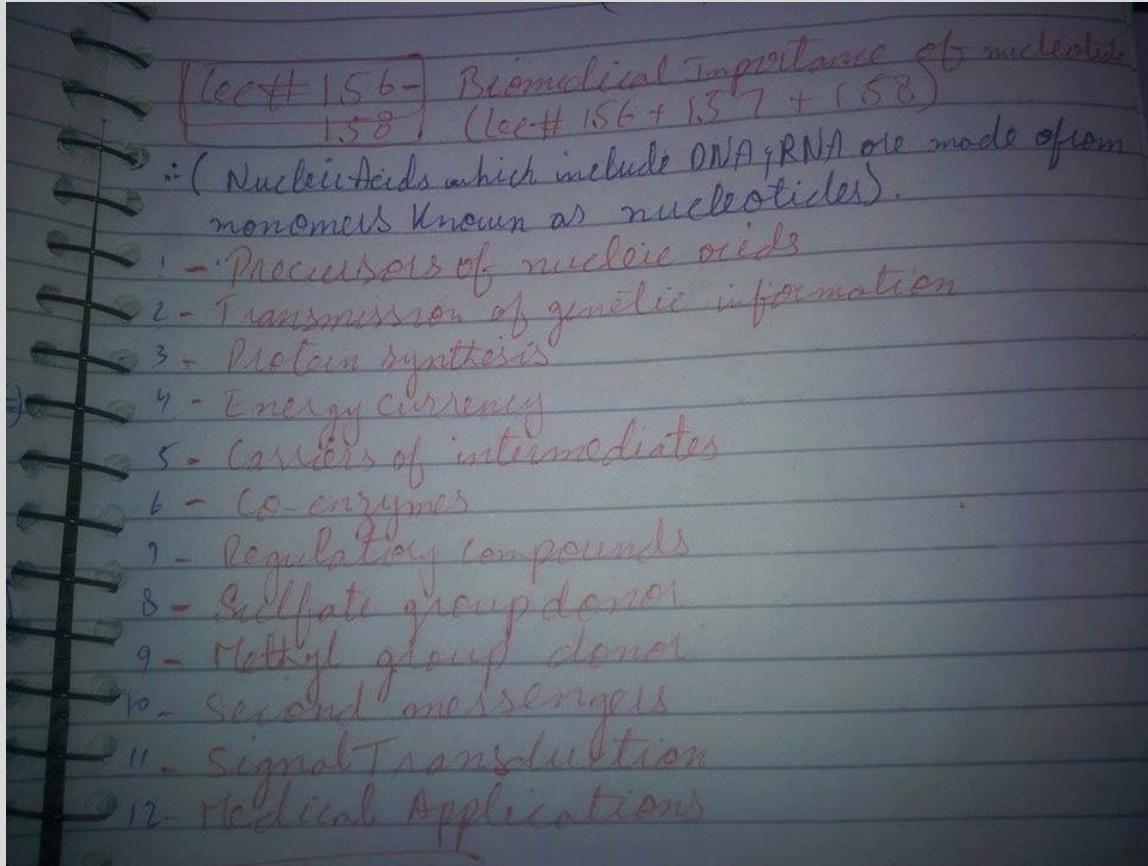 Lec# 156- Biomedical Importance of nucleotide
158 (Lec# 156 + 157 + 158)
∴ (Nucleic Acids which include DNA & RNA are made from
monomers known as nucleotides).
1 - Precursors of nucleic acids
2 - Transmission of genetic information
3 - Protein synthesis
4 - Energy currency
5 - Carriers of intermediates
6 - Co-enzymes
7 - Regulatory compounds
8 - Sulfate group donor
9 - Methyl group donor
10 - Second messengers
11 - Signal Transduction
12 - Medical Applications